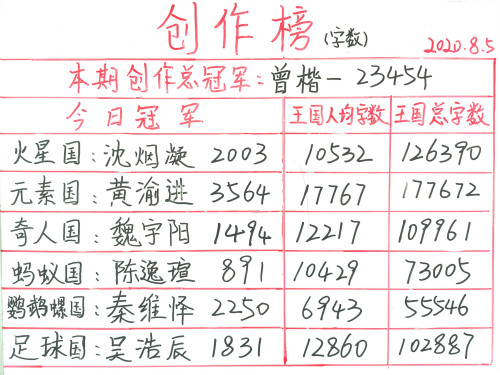 创作榜(字数) 2020.8.5
本期创作总冠军:曾楷一23454
今日冠军 王国人均字数 王国总字数
火星国:沈烟凝 2003 10532 126390
元素国:黄渝逃 3564 17767 177672
奇人国:魏宇阳 1494 12217 109961
蚂蚁国:陈逸瑄 891 10429 73005
鹦鹉螺国:秦维怿 2250 6943 55546
足球国:吴浩辰 1831 12860 102887